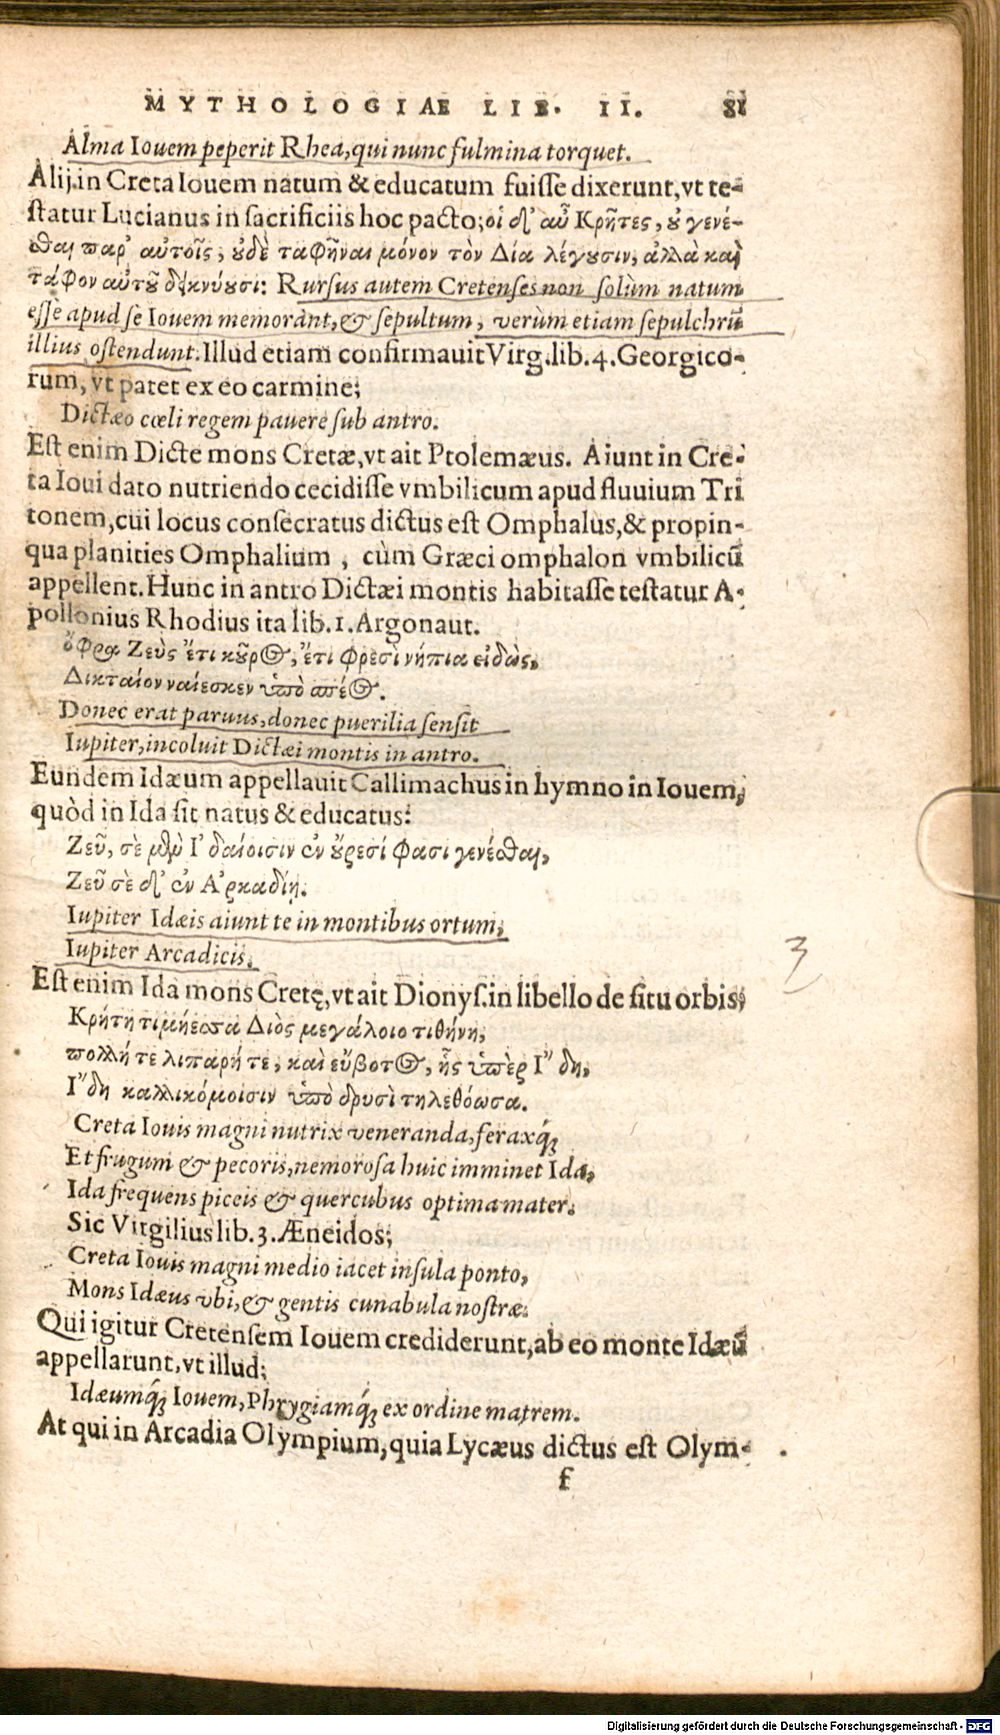 MYTHOLOGIAE LIB. II. 81
Alma Iouem peperit Rhea, qui nunc fulmina torquet.
Alij.in Creta Iouem natum & educatum fuisse dixerunt, vt te-
statur Lucianus in sacrificiis hoc pacto; οἱ δ' αὖ Κρῆτες, οὐ γενέ-
σθαι παρ' αὐτοῖς, οὐδὲ ταφῆναι μόνον τὸν Δία λέγουσιν, ἀλλὰ καὶ
τάφον αὐτοῦ δεικνύουσι: Rursus autem Cretenses non solùm natum
esse apud se Iouem memorant, & sepultum, verùm etiam sepulchrū
illius ostendunt. Illud etiam confirmauit Virg. lib. 4. Georgico-
rum, vt patet ex eo carmine;
Dictæo cœli regem pauere sub antro.
Est enim Dicte mons Cretæ, vt ait Ptolemæus. Aiunt in Cre-
ta Ioui dato nutriendo cecidisse vmbilicum apud fluuium Tri
tonem, cui locus consecratus dictus est Omphalus, & propin-
qua planities Omphalium, cùm Græci omphalon vmbilicū
appellent. Hunc in antro Dictæi montis habitasse testatur A-
pollonius Rhodius ita lib. 1. Argonaut.
ὄφρα Ζεὺς ἔτι κοῦρος, ἔτι φρεσὶ νήπια εἰδὼς,
Δικταῖον ναίεσκεν ὑπὸ σπέος.
Donec erat paruus, donec puerilia sensit
Iupiter, incoluit Dictæi montis in antro.
Eundem Idæum appellauit Callimachus in hymno in Iouem,
quòd in Ida sit natus & educatus:
Ζεῦ, σὲ μὲν Ἰδαίοισιν ἐν οὔρεσί φασι γενέσθαι,
Ζεῦ σὲ δ' ἐν Ἀρκαδίῃ.
Iupiter Idæis aiunt te in montibus ortum,
Iupiter Arcadicis.
3
Est enim Ida mons Cretę, vt ait Dionys. in libello de situ orbis;
Κρήτη τιμήεσσα Διὸς μεγάλοιο τιθήνη,
πολλή τε λιπαρή τε, καὶ εὔβοτος, ἧς ὑπὲρ Ἴδη,
Ἴδη καλλικόμοισιν ὑπὸ δρυσὶ τηλεθόωσα.
Creta Iouis magni nutrix veneranda, feraxq́;
Et frugum & pecoris, nemorosa huic imminet Ida,
Ida frequens piceis & quercubus optima mater.
Sic Virgilius lib. 3. Æneidos;
Creta Iouis magni medio iacet insula ponto,
Mons Idæus vbi, & gentis cunabula nostræ.
Qui igitur Cretensem Iouem crediderunt, ab eo monte Idæū
appellarunt, vt illud;
Idæumq́; Iouem, Phrygiamq́; ex ordine matrem.
At qui in Arcadia Olympium, quia Lycæus dictus est Olym-
f
Digitalisierung gefördert durch die Deutsche Forschungsgemeinschaft - DFG